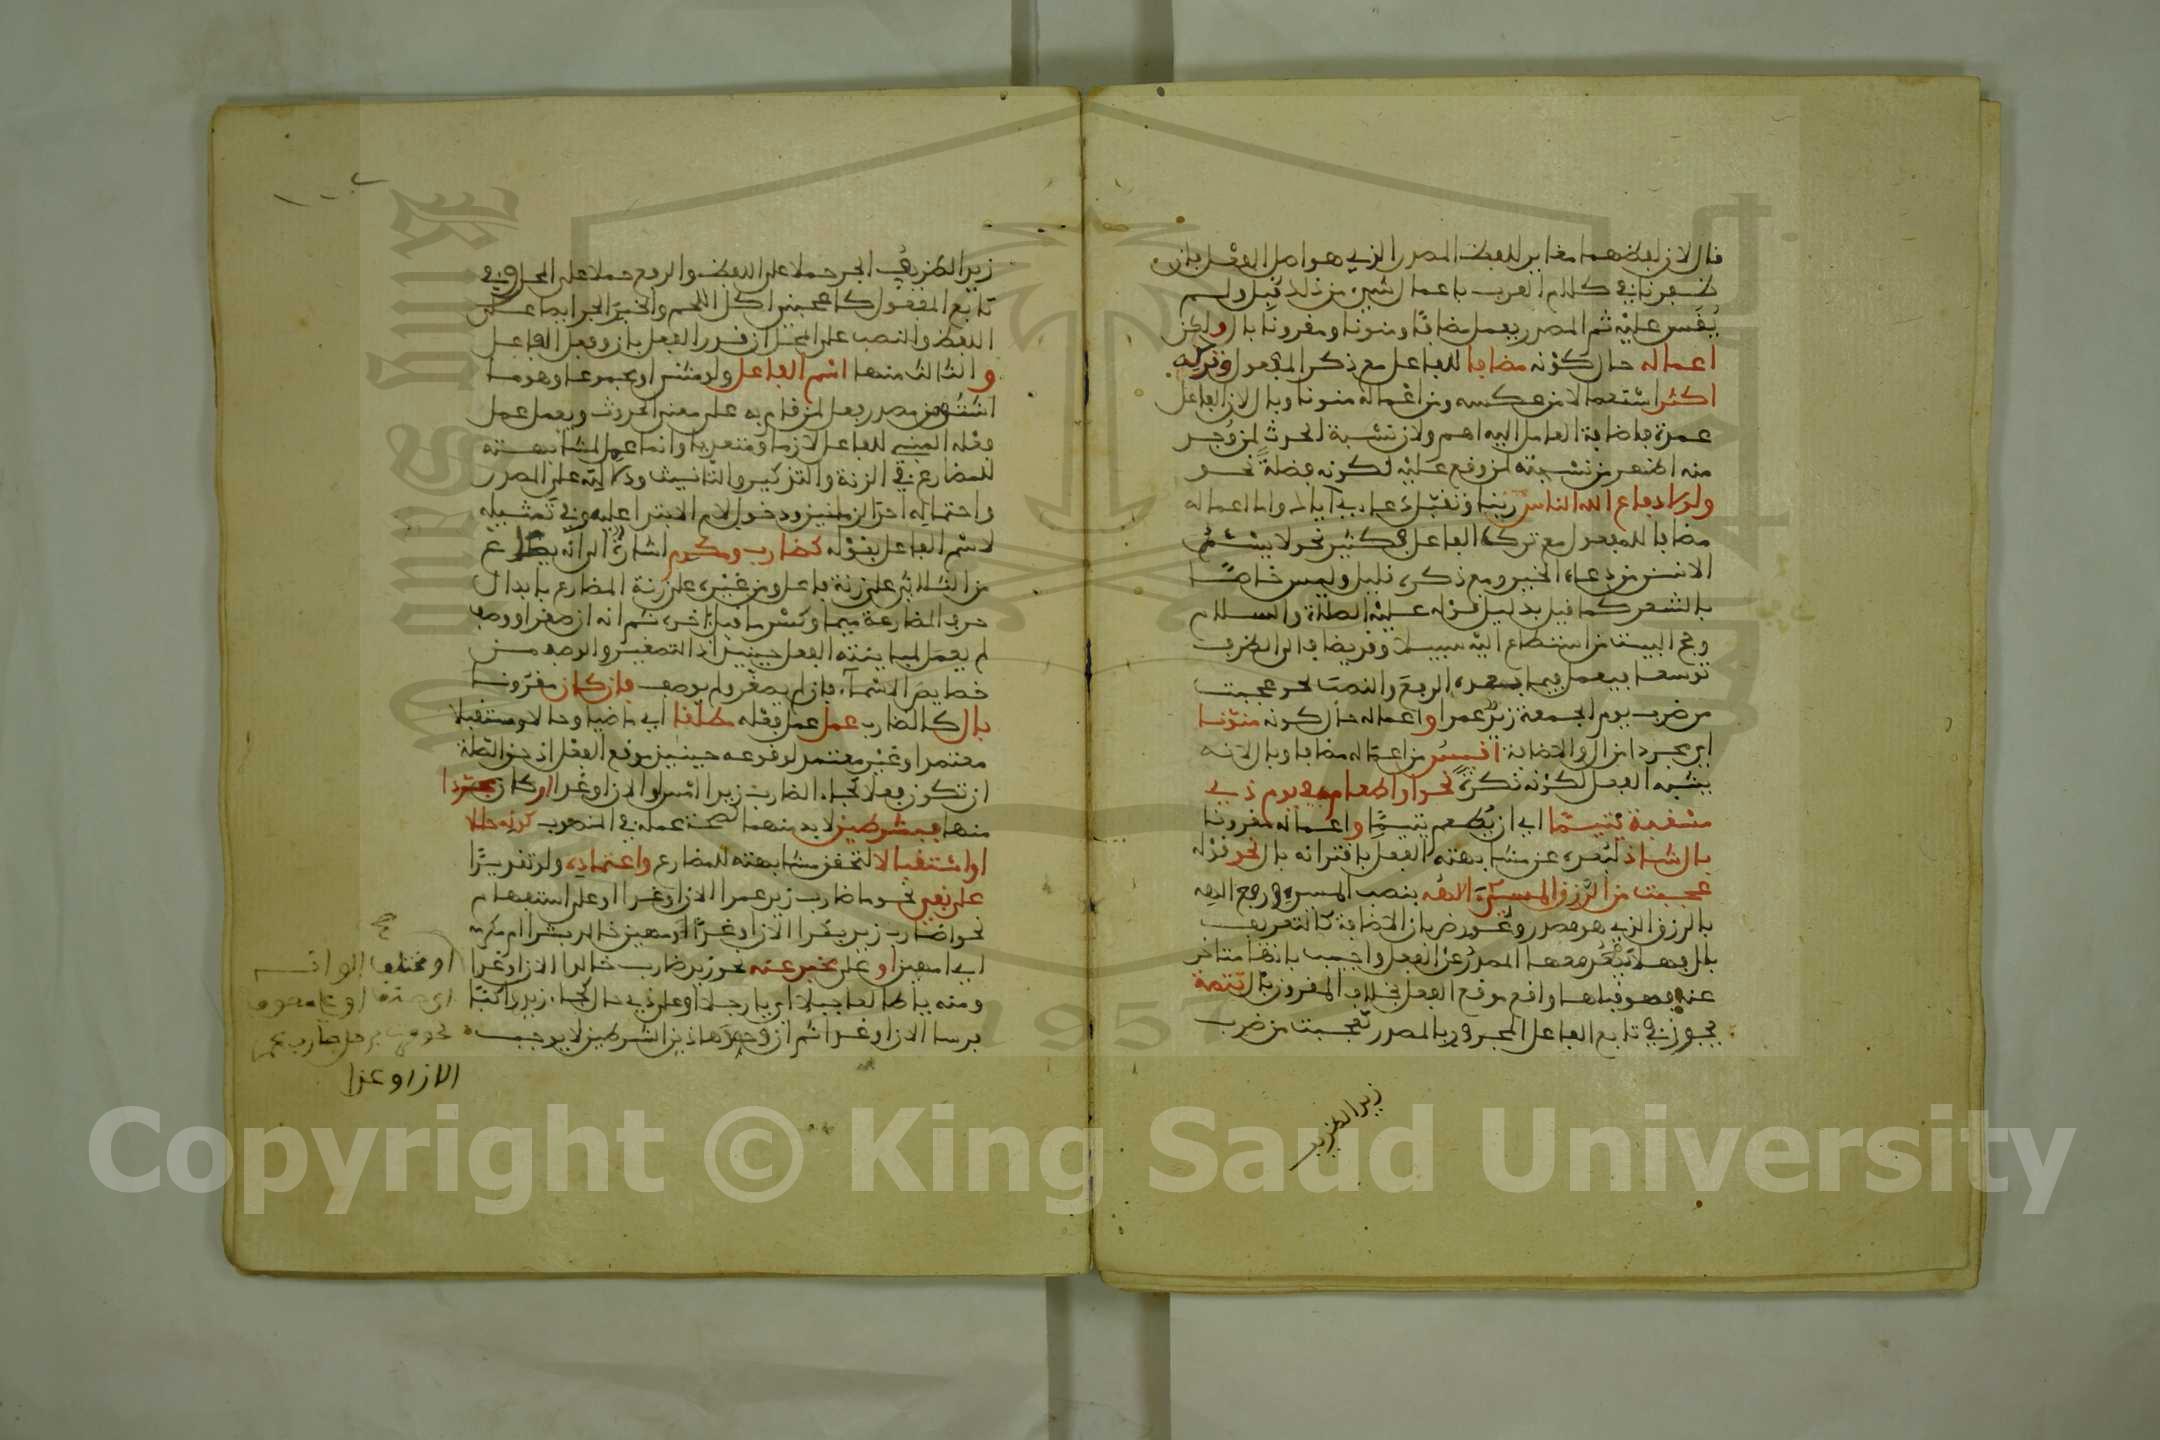 قال لان لفظهما مغاير للفظ المصدر الذي هو اصل الفعل فان
ظفرنا في كلام العرب باعمال شيء من ذلك قبل ولم
يقس عليه ثم المصدر يعمل مضافا ومنونا ومقرونا بال ولكن
اعماله حال كونه مضافا للفاعل مع ذكر المفعول وتركه
اكثر استعمالا من عكسه ومن اعماله منونا وبال لان الفاعل
عمدة فاضافة العامل اليه اهم ولان نسبة الحدث لمن وجد
منه اظهر من نسبته لمن وقع عليه لكونه فضلة نحو
ولولا دفاع الله الناس ربنا وتقبل دعاء اي اياك واما اعماله
مضافا للمفعول مع ترك الفاعل فكثير نحو لا يسئم
الانسن من دعاء الخير ومع ذكره قليل وليس خاصا
بالشعر كما قيل بدليل قوله عليه الصلاة والسلام
وحج البيت من استطاع اليه سبيلا وقد يضاف الى الظرف
توسعا فيعمل فيما بعده الرفع والنصب نحو عجبت
من ضرب يوم الجمعة زيد عمرا واعماله حال كونه منونا
اي مجردا من ال والاضافة اقيس من اعماله مضافا وبال لانه
يشبه الفعل لكونه نكرة نحو او اطعام في يوم ذي
مسغبة يتيما اي ان يطعم يتيما واعماله مقرونا
بال شاذ لبعده عن مشابهته الفعل باقترانه بال نحو قوله
عجبت من الرزق المسيء الهه بنصب المسيء ورفع الهه
بالرزق الذي هو مصدر وعورض بان الاضافة كالتعريف
بال فهلا بعد معها المصدر عن الفعل واجيب بانها متاخر
عنه فهو قبلها واقع موقع الفعل بخلاف المقرون بال تتمة
يجوز في تابع الفاعل المجرور بالمصدر كعجبت من ضرب
زيد الظريف
زيد الظريف الجر حملا على اللفظ والرفع حملا على المحل وفي
تابع المفعول كاعجبني اكل اللحم والخبز الجر ايضا على
اللفظ والنصب على المحل ان قدر الفعل بان وفعل الفاعل
والثالث منها اسم الفاعل ولو مثنى او مجموعا وهو ما
اشتق من مصدر فعل لمن قام به على معنى الحدوث ويعمل عمل
فعله المبني للفاعل لازما ومتعديا وانما عمل لمشابهته
للمضارع في الزنة والتذكير والتانيث ودلالته على المصدر
واحتماله احد الزمانين ودخول لام الابتدا عليه وفي تمثيله
لاسم الفاعل بقوله كضارب ومكرم اشارة الى انه يصاغ
من الثلاثي على زنة فاعل ومن غيره على زنة المضارع بابدال
حرف المضارعة ميما وكسر ما قبل اخره ثم انه ان صغر او وصف
لم يعمل لمباينته الفعل حينئذ اذ التصغير والوصف من
خصايص الاسماء فان لم يصغر ولم يوصف فان كان مقرونا
بال كالضارب عمل عمل فعله مطلقا اي ماضيا وحالا ومستقبلا
معتمدا او غير معتمد لوقوعه حينئذ موقع الفعل اذ حق الصلة
ان تكون فعلا كجاء الضارب زيدا امس او الان او غدا او كان مجردا
منها فبشرطين لا بد منهما لصحة عمله في المنصوب كونه حالا
او استقبالا لتحقق مشابهته للمضارع واعتماده ولو تقديرا
على نفي نحو ما ضارب زيد عمرا الان او غدا او على استفهام
نحو اضارب زيد بكرا الان او غدا او مهين خالد بشرا ام مكرمه
اي امهين او على مخبر عنه نحو زيد ضارب خالدا الان او غدا
ومنه يا طالعا جبلا اي يا رجلا او على ذي حال كجاء زيد راكبا
فرسا الان او غدا ثم ان وجود هاذين الشرطين لا يوجب
او مختلف الوانه
اي صنف او على موصوف
نحو مررت برجل ضارب عمرا
الان او غدا
Copyright © King Saud University
1957